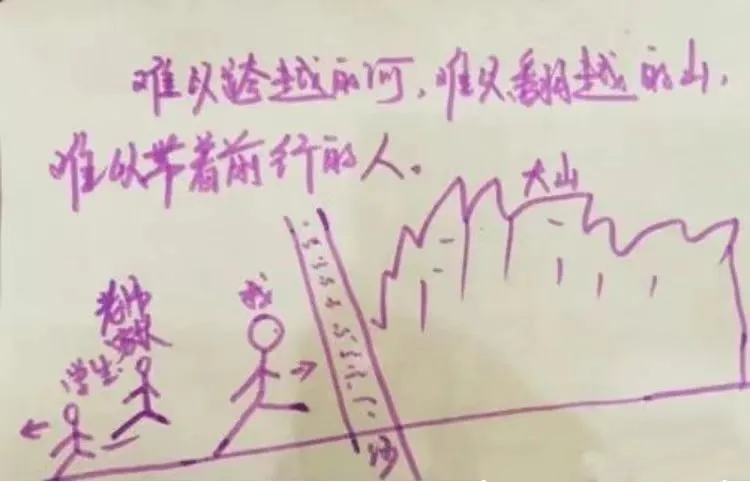 难以跨越的河,难以翻越的山,
难以带着前行的人。
大山
我
老师
学生
河